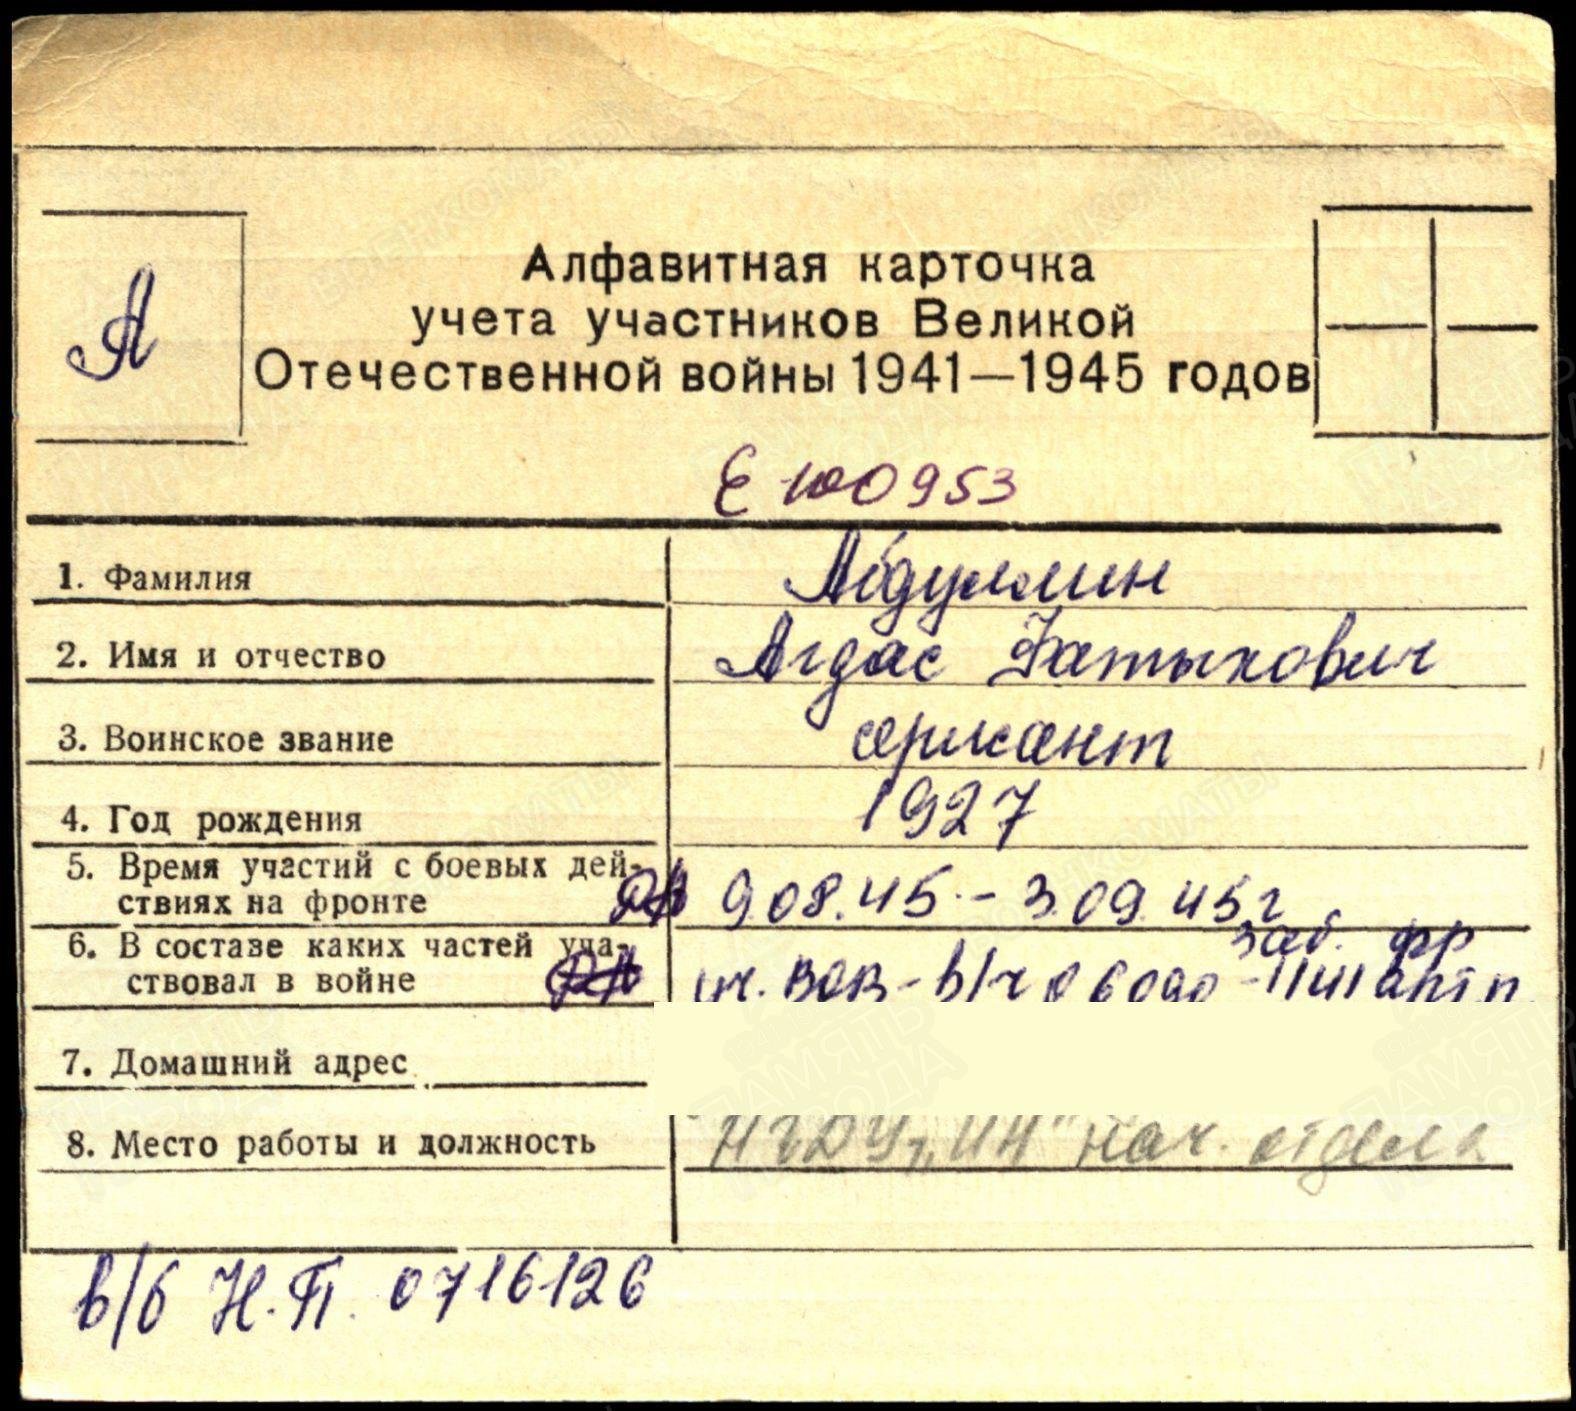 А
Алфавитная карточка
учета участников Великой
Отечественной войны 1941—1945 годов
Е 100953
1. Фамилия Абдуллин
2. Имя и отчество Агдас Фатыхович
3. Воинское звание сержант
4. Год рождения 1927
5. Время участий с боевых дей-
ствиях на фронте 9.08.45 - 3.09.45г
6. В составе каких частей уча- заб. фр
ствовал в войне уч. ВОВ - в/ч 06090 - арт п.
7. Домашний адрес
8. Место работы и должность НГДУ „ИН" нач. отдела
в/б Н.П. 0716126